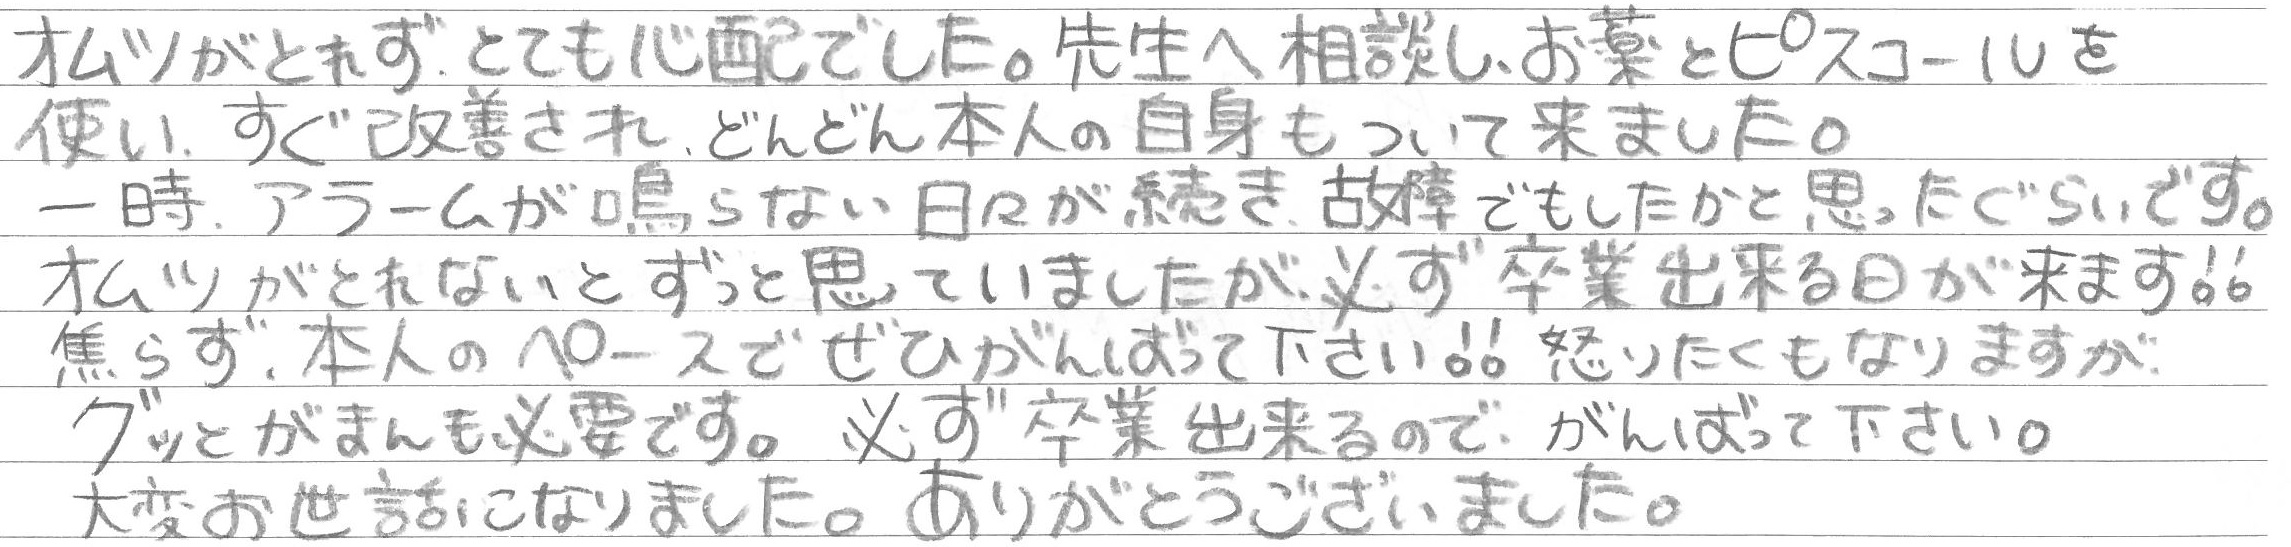 オムツがとれず、とても心配でした。先生へ相談し、お薬とピスコールを
使い、すぐ改善され、どんどん本人の自身もついて来ました。
一時、アラームが鳴らない日々が続き、故障でもしたかと思ったぐらいです。
オムツがとれないとずっと思っていましたが、必ず卒業出来る日が来ます!!
焦らず、本人のペースでぜひがんばって下さい!!怒りたくもなりますが、
グッとがまんも必要です。必ず卒業出来るので、がんばって下さい。
大変お世話になりました。ありがとうございました。